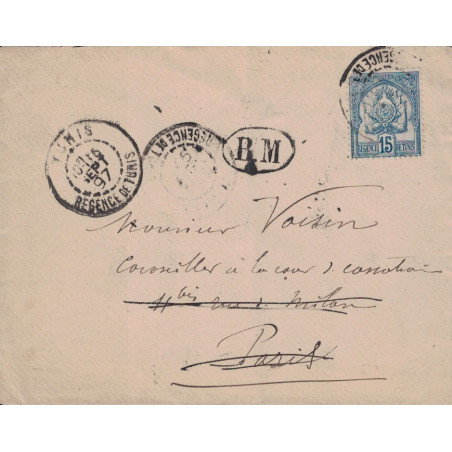 TUNIS
SEPT
97
REGENCE DE TUNIS
REGENCE DE T
B M
REGENCE DE
15
REGENCE DE TUNIS
Monsieur Voisin
Conseiller à la cour d. cassation
4 bis rue d. Milan
Paris